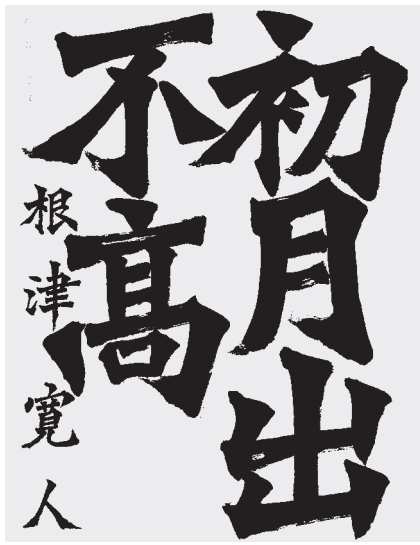 初月出
不髙
根津寛人